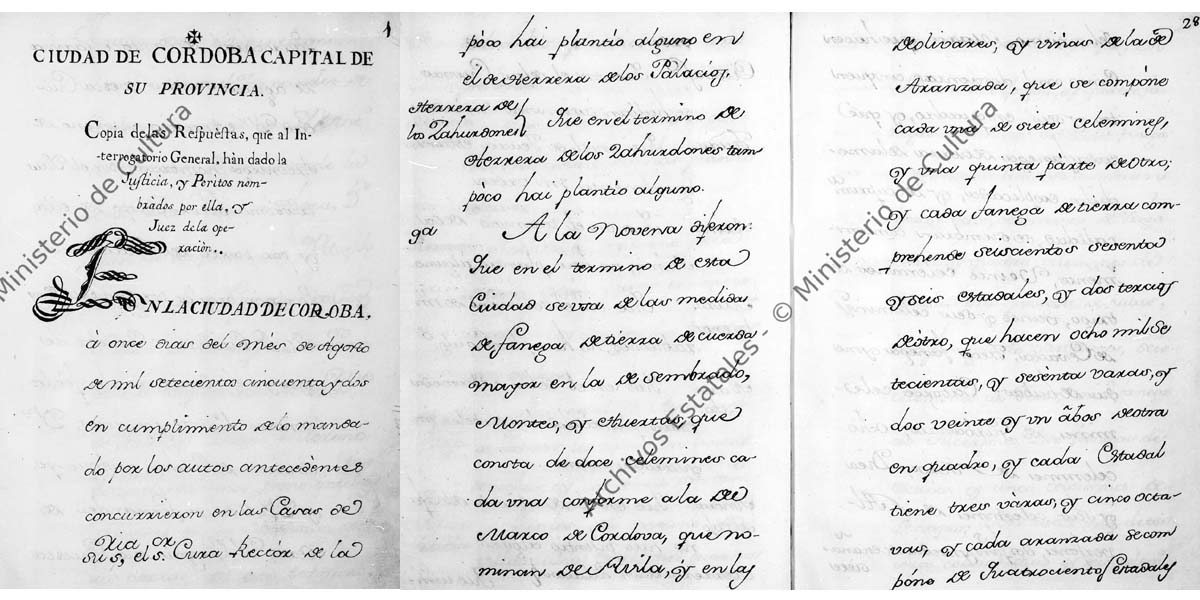 1
CIUDAD DE CORDOBA CAPITAL DE
SU PROVINCIA.
Copia delas Respuestas, que al In-
-terrogatorio General, hàn dado la
Justicia, y Peritos nom-
bràdos por ella, y
Juez dela ope-
raciòn..
EN LA CIUDAD DE CORDOBA.
à once dias del Mès de Agosto
de mil setecientos cincuenta y dos
en cumplimiento delo manda-
do por los autos antecèdentes
concurrieron en las Casas de
su Sria, el Sor Cura Rector de la
pòco hai plantìo alguno en
el de Herrera de los Palacios,
Herrera de
los Zahurdones
Que en el termino de
Herrera de los Zahurdones tam
pòco hai plantìo alguno.
9a
A la Novena dijeron:
Que en el termino de esta
Ciudad se usa de las medidas
de fanega de tierra de cuerda
mayor en la de Sembrado,
Montes, y Huertas, que
consta de doce celemines ca-
da una conforme a la de
Marco de Còrdova, que no-
minan de Avila, y en las
28
de olivares, y viñas dela de
Aranzada, que se compòne
cada una de siete celemines,
y una quinta pàrte de otro;
y cada fanega de tierra com-
prehende seiscientos sesenta
y seis estadales, y dos tercios
de òtro, que hacen ocho mil se
tecientas, y sesènta varas, y
dos veinte y un abos de otra
en quadro, y cada Estadal
tiene tres vàras, y cinco octa-
vas, y cada aranzada se com
pòne de Quatrocientos estadales
Ministerio de Cultura
Archivos Estatales - © Ministerio de Cultura